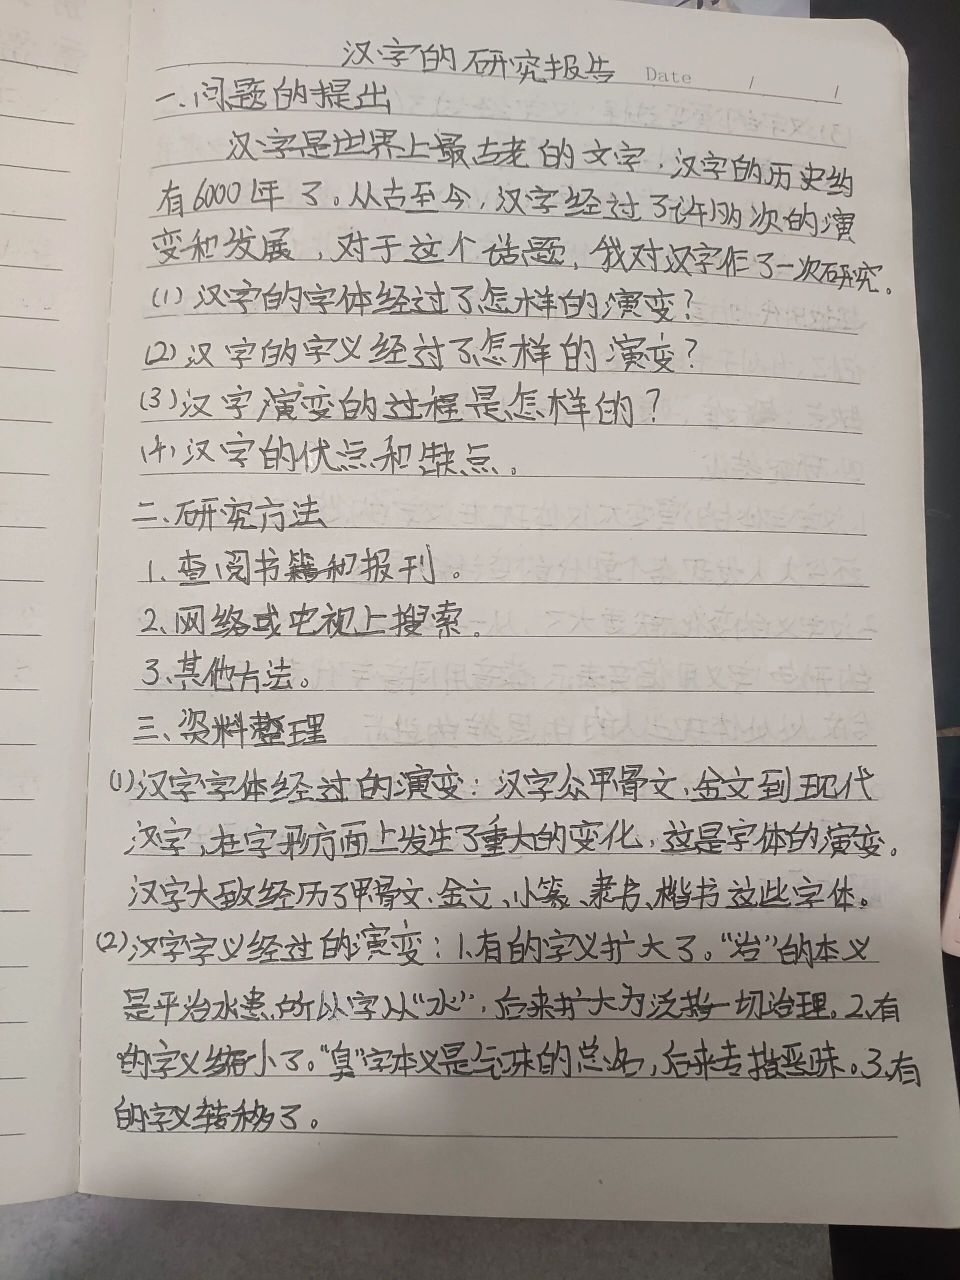 汉字的研究报告 Date / /
一、问题的提出
汉字是世界上最古老的文字，汉字的历史约
有6000年了。从古至今，汉字经过了许多次的演
变和发展，对于这个话题，我对汉字作了一次研究。
(1)汉字的字体经过了怎样的演变？
(2)汉字的字义经过了怎样的演变？
(3)汉字演变的过程是怎样的？
(4)汉字的优点和缺点。
二、研究方法
1、查阅书籍和报刊。
2、网络或电视上搜索。
3、其他方法。
三、资料整理
(1)汉字字体经过的演变：汉字从甲骨文、金文到现代
汉字，在字形方面上发生了重大的变化，这是字体的演变。
汉字大致经历了甲骨文、金文、小篆、隶书、楷书这些字体。
(2)汉字字义经过的演变：1、有的字义扩大了。“治”的本义
是平治水患，所以字从“水”，后来扩大为泛指一切治理。2、有
的字义缩小了。“臭”字本义是气味的总名，后来专指恶味。3、有
的字义转移了。